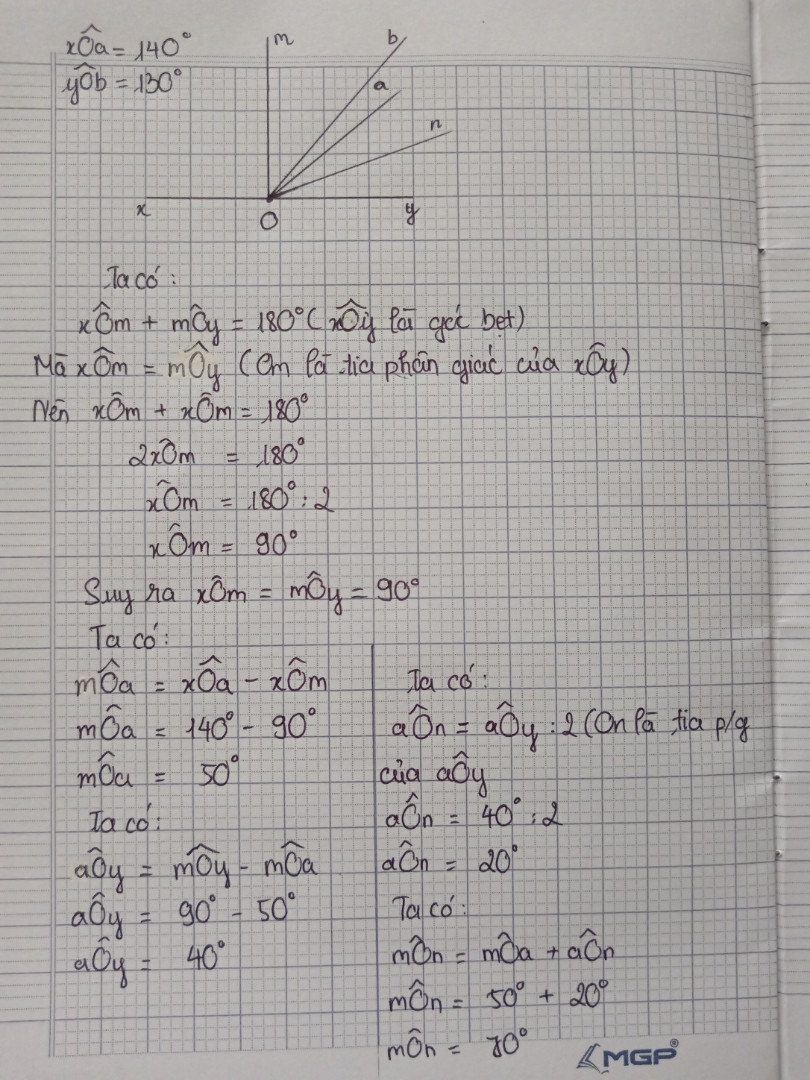 xÔa = 140°
yÔb = 130°
m
b
a
n
x
O
y
Ta có:
xÔm + mÔy = 180° ( xÔy là góc bẹt)
Mà xÔm = mÔy (Om là tia phân giác của xÔy)
Nên xÔm + xÔm = 180°
2xÔm = 180°
xÔm = 180° : 2
xÔm = 90°
Suy ra xÔm = mÔy = 90°
Ta có:
mÔa = xÔa - xÔm
mÔa = 140° - 90°
mÔa = 50°
Ta có:
aÔy = mÔy - mÔa
aÔy = 90° - 50°
aÔy = 40°
Ta có:
aÔn = aÔy : 2 (On là tia p/g
của aÔy
aÔn = 40° : 2
aÔn = 20°
Ta có:
mÔn = mÔa + aÔn
mÔn = 50° + 20°
mÔn = 70°
MGP®